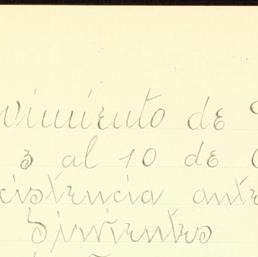 vimiento de
3 al 10 de
cistencia ante
Sirvientes